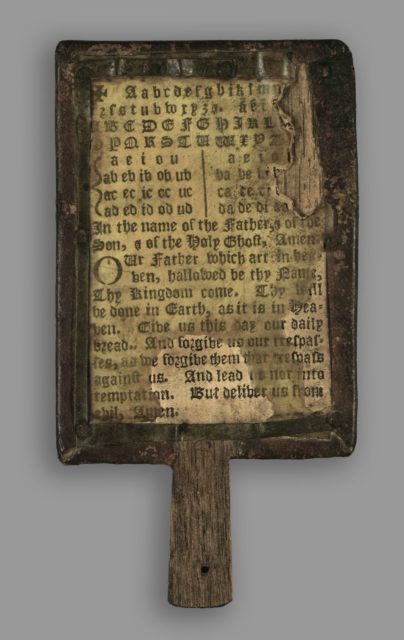 ✠ A a b c d e f g h i k l m n
r ſ s t u v w x y z &. a e i
A B C D E F G H I K L
O P Q R S T U W X Y Z
a e i o u | a e i o
ab eb ib ob ub | ba be bi
ac ec ic oc uc | ca ce ci
ad ed id od ud | da de di
In the name of the Father, & of the
Son, & of the Holy Ghoſt, Amen.
OUr Father which art in Hea-
ven, hallowed be thy Name,
Thy Kingdom come. Thy will
be done in Earth, as it is in Hea-
ven. Give us this day our daily
bread. And forgive us our treſpaſ-
ſes, as we forgive them that treſpaſs
againſt us. And lead us not into
temptation. But deliver us from
evil, Amen.